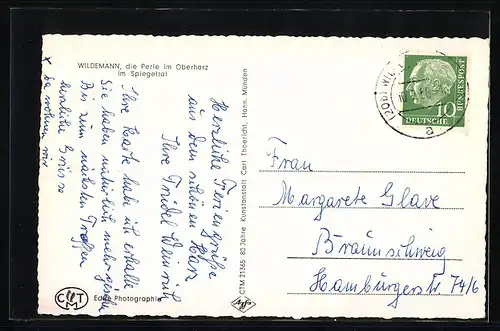 WILDEMANN, die Perle im Oberharz
im Spiegeltal
Herzliche Feriengrüße
aus dem schönen Harz
Ihre Trudel
Ihre Karte habe ich erhalten
Sie haben natürlich mehr gesehen
Bis zum nächsten Treffen
herzliche Grüsse
x da wohnen wir
CMT
Echte Photographie
CTM 21365 80 Jahre Kunstanstalt Carl Thoericht, Hann. Münden
Agfa
(20b) WIL
a
10
DEUTSCHE
BUNDESPOST
Frau
Margarete Glave
Braunschweig
Hamburgerstr. 74/6